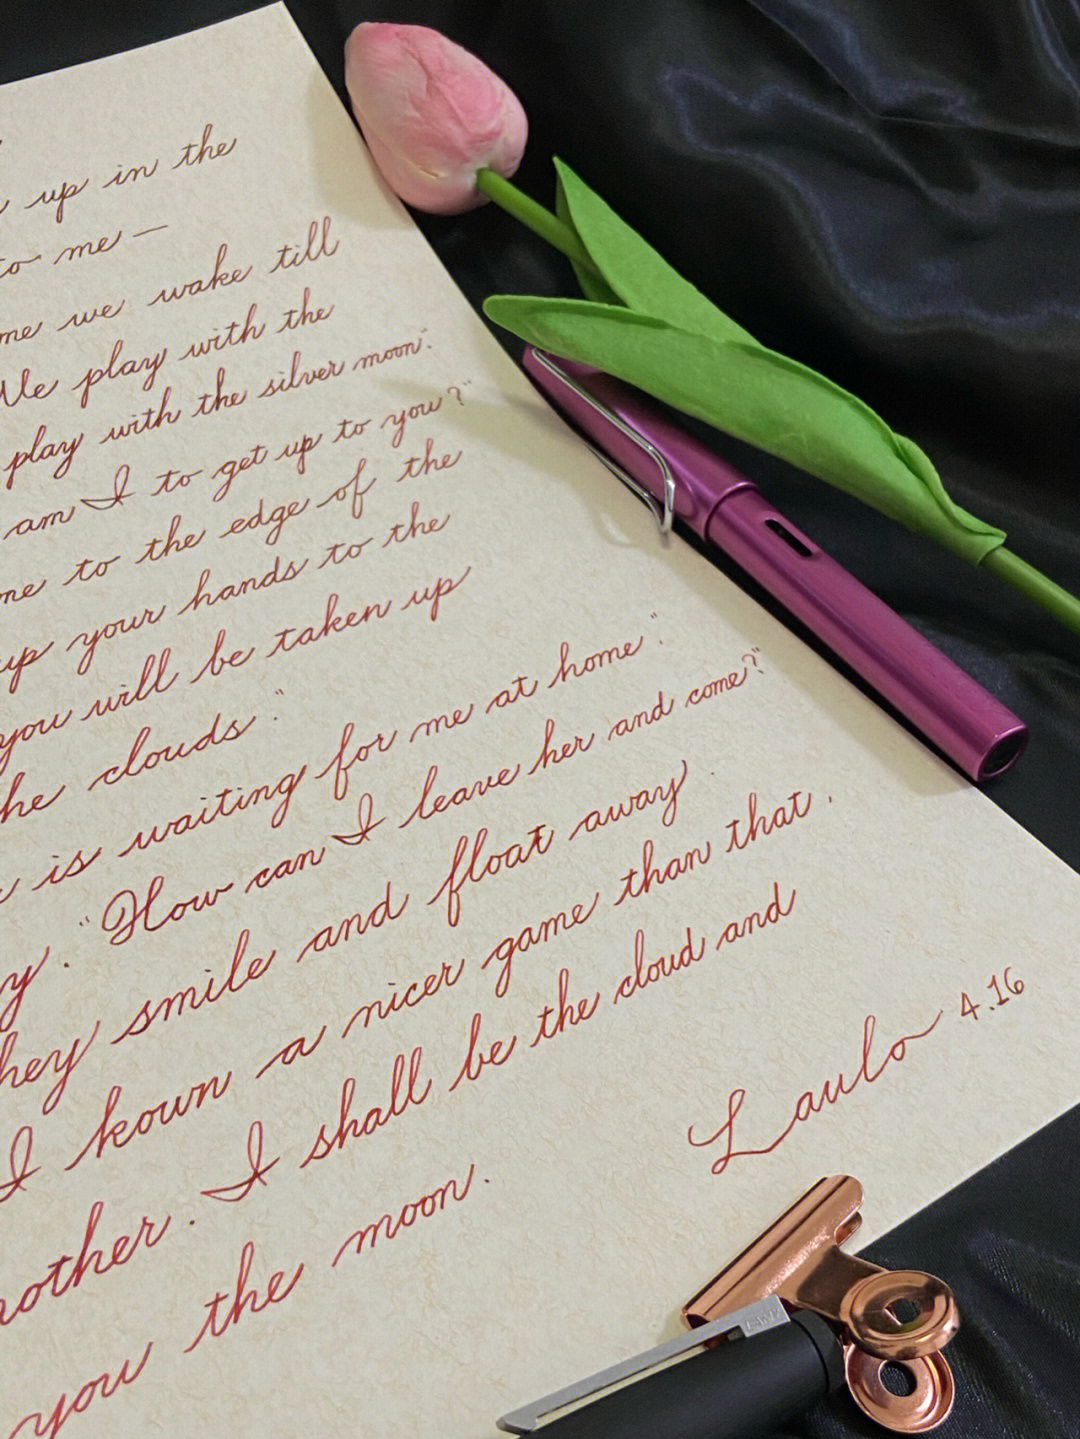 up in the
to me —
me we wake till
We play with the
play with the silver moon."
am I to get up to you?"
me to the edge of the
up your hands to the
you will be taken up
the clouds."
is waiting for me at home".
y. "How can I leave her and come?"
hey smile and float away.
I kown a nicer game than that.
mother. I shall be the cloud and
you the moon.
Laulo 4.16
LAMY